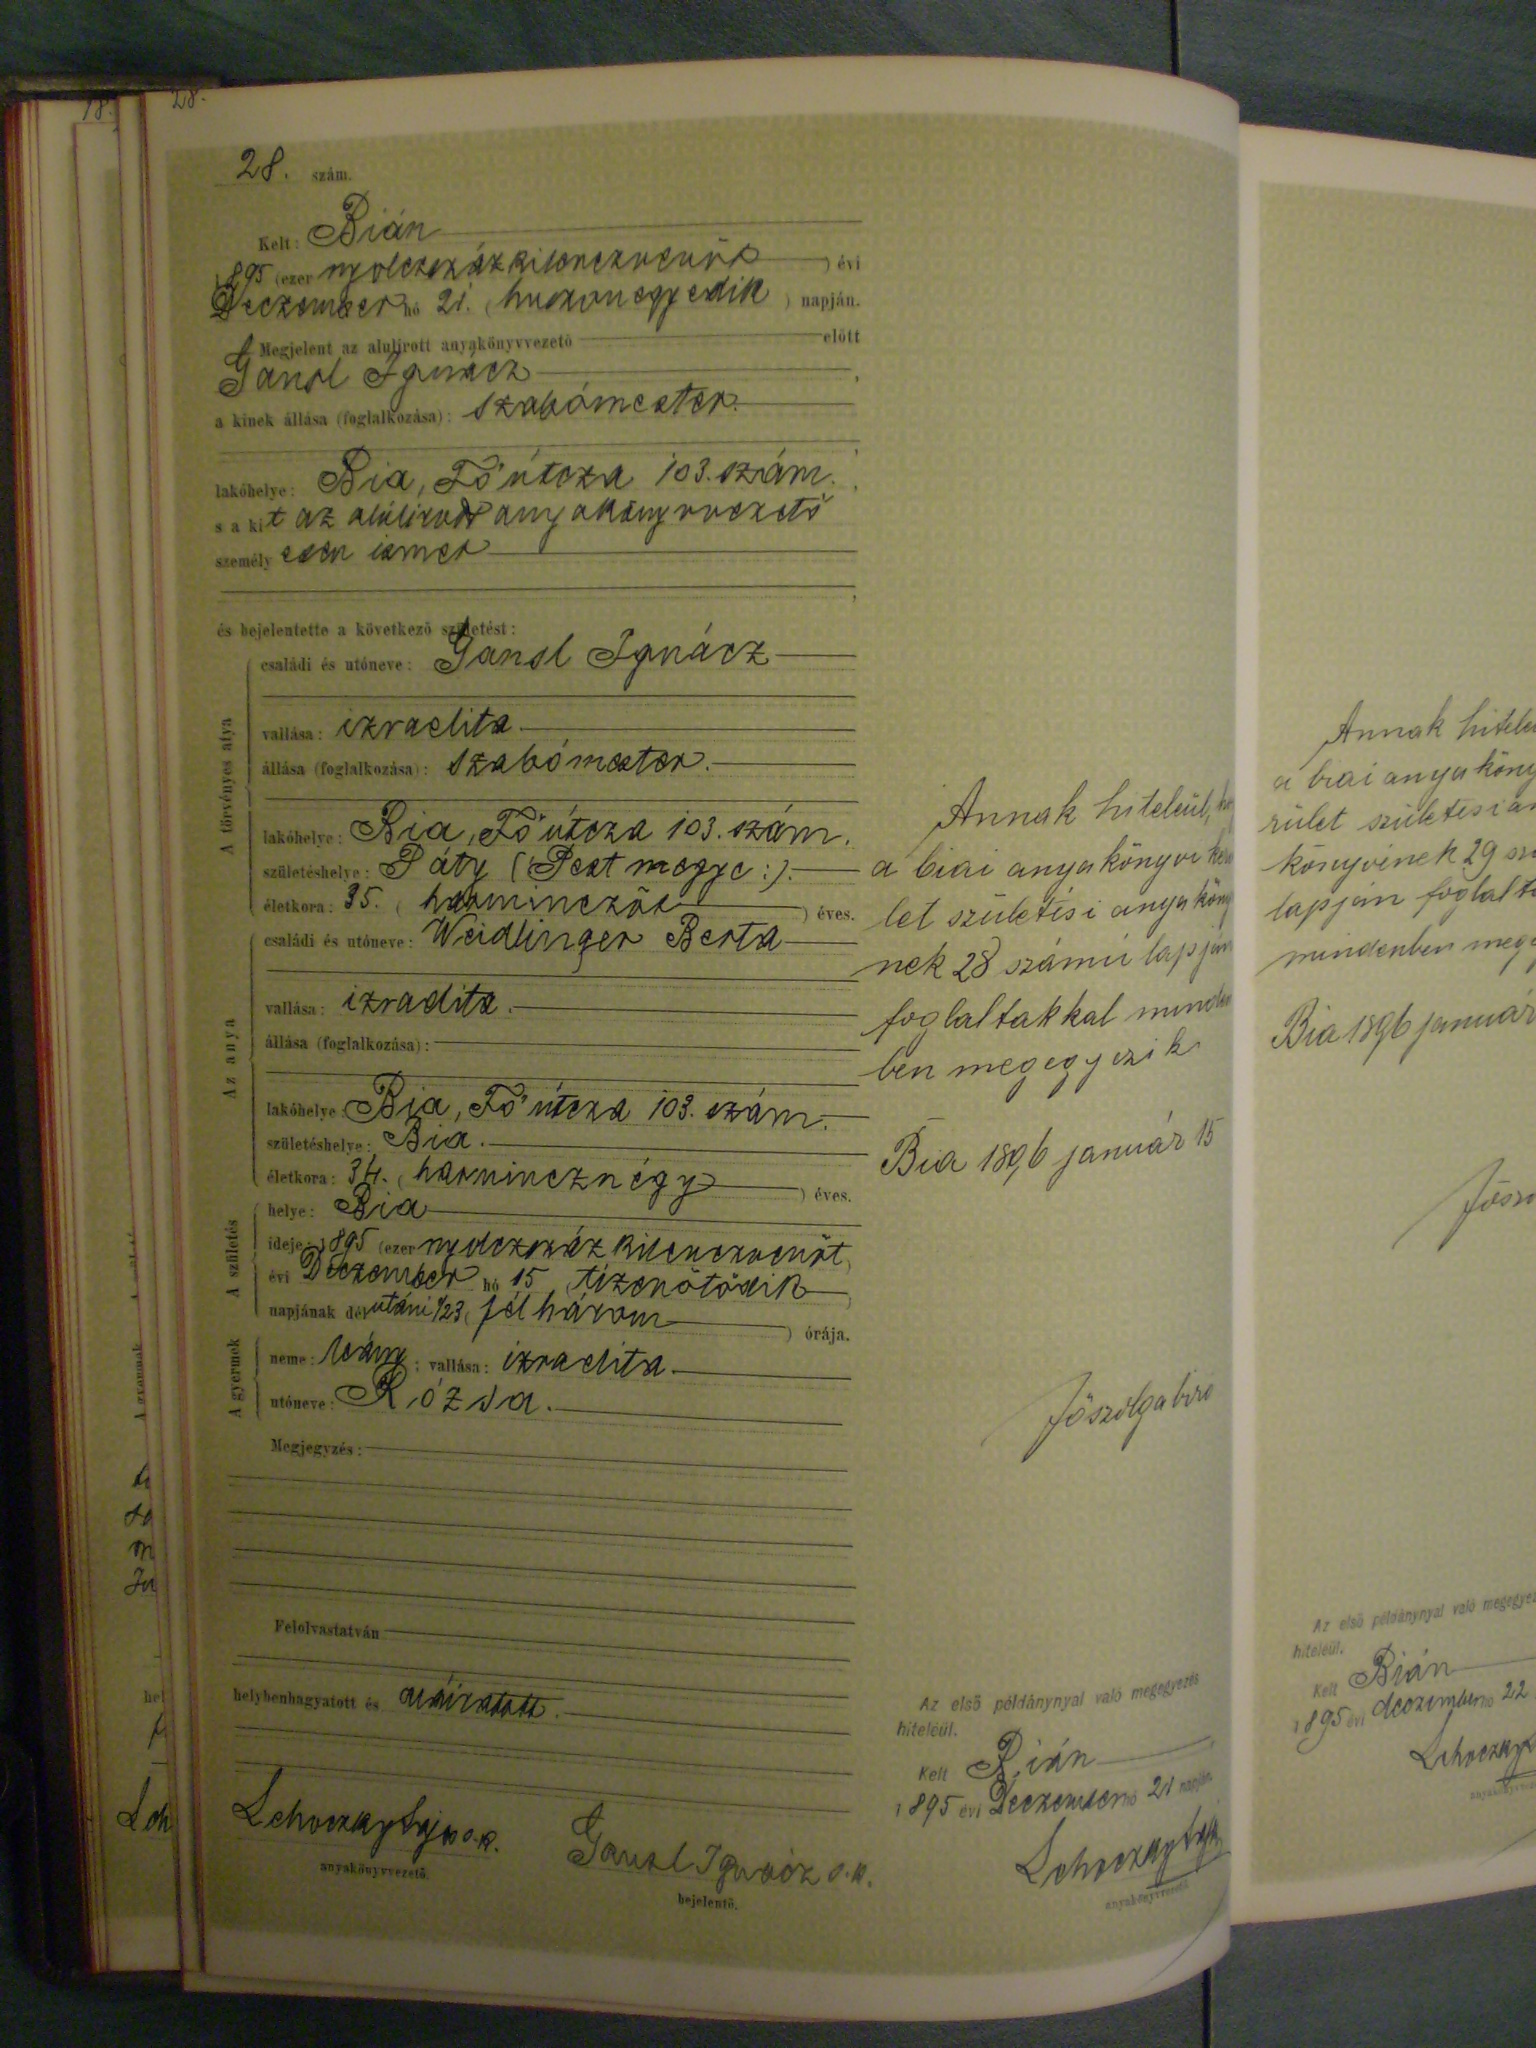 18.
28.
28. szám.
Kelt: Bián
1895 (ezer nyolczszázkilenczvenöt ) évi
Deczember hó 21. ( huszonegyedik ) napján.
Megjelent az alulirott anyakönyvvezető előtt
Gansl Ignácz ,
a kinek állása (foglalkozása): szabómester.
lakóhelye: Bia, Fő útcza 103. szám. ,
s a kit az alúlirott anyakönyvvezető
személyesen ismer
,
és bejelentette a következő születést:
A törvényes atya
családi és utóneve: Gansl Ignácz
vallása: izraelita
állása (foglalkozása): szabómester.
lakóhelye: Bia, Fő útcza 103. szám.
születéshelye: Páty (Pest megye:).
életkora: 35. ( harminczöt ) éves.
Az anya
családi és utóneve: Weidlinger Berta
vallása: izraelita.
állása (foglalkozása):
lakóhelye: Bia, Fő útcza 103. szám.
születéshelye: Bia.
életkora: 34. ( harmincznégy ) éves.
A születés
helye: Bia
ideje: 1895 (ezer nyolczszáz kilenczvenöt)
évi Deczember hó 15 (tizenötödik )
napjának délutáni 1/23 ( fél három ) órája.
A gyermek
neme: leány; vallása: izraelita.
utóneve: Rózsa.
Megjegyzés:
Felolvastatván
helybenhagyatott és aláiratott.
Lehoczky Lajos s.k.
anyakönyvvezető.
Gansl Ignácz s.k.
bejelentő.
Annak hiteleül,
a biai anyakönyvi
let születési anyaköny
nek 28 számú lapján
foglaltakkal minden
ben megegyezik
Bia 1896 január 15
főszolgabiro
Az első példánynyal való megegyezés
hiteléül.
Kelt Bián
1895 évi Deczember hó 21 napján
Lehoczky
anyakönyvvezető
Annak hitele
a biai anyaköny
rület születési an
könyvének 29 sz
lapján foglalt
mindenben mege
Bia 1896 január
főszo
Az első példánynyal való megegyez
hiteléül.
Kelt Bián
1895 évi deczember hó 22
Lehoczky